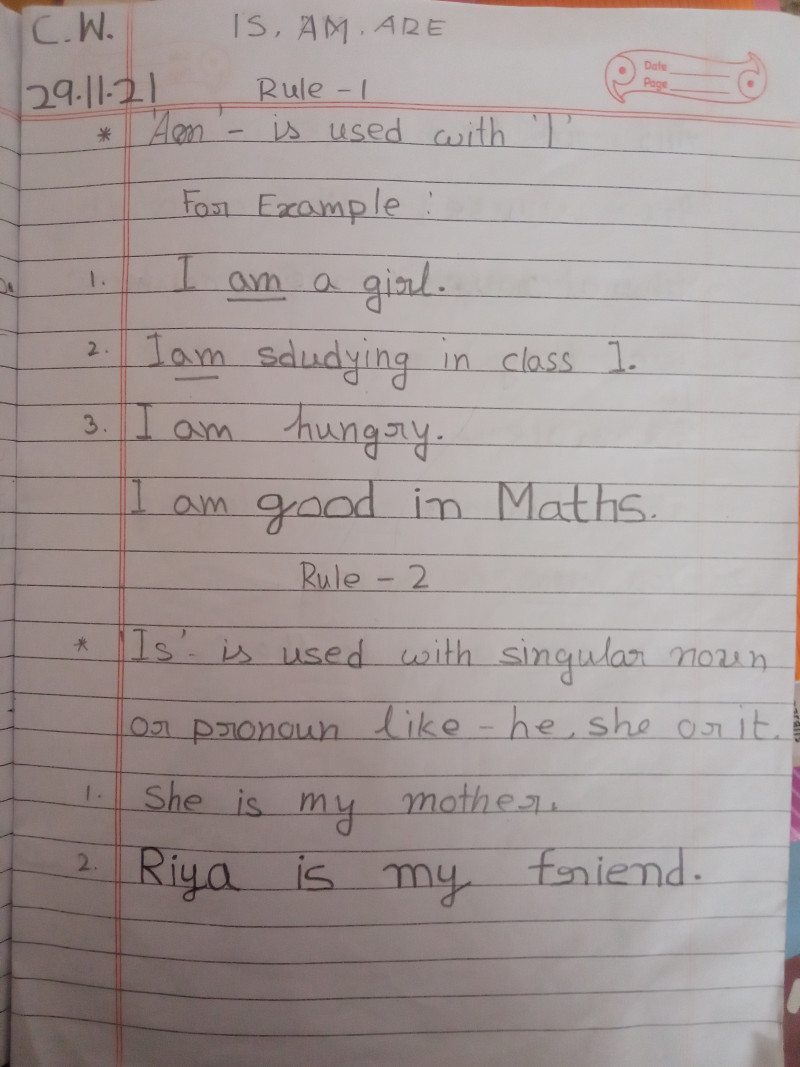 C.W. IS, AM. ARE
Date
Page
29.11.21 Rule - 1
* 'Am' - is used with 'I'
For Example :
1. I am a girl.
2. I am sdudying in class I.
3. I am hungry.
I am good in Maths.
Rule - 2
* 'Is' - is used with singular noun
or pronoun like - he, she or it.
1. She is my mother.
2. Riya is my friend.